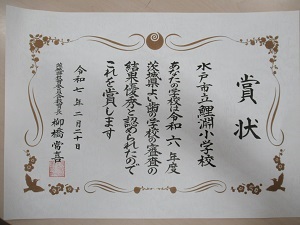 賞状
水戸市立鯉淵小学校
あなたの学校は令和六年度
茨城県よい歯の学校の審査の
結果優秀と認められたので
これを賞します
令和七年二月二十日
柳橋常喜